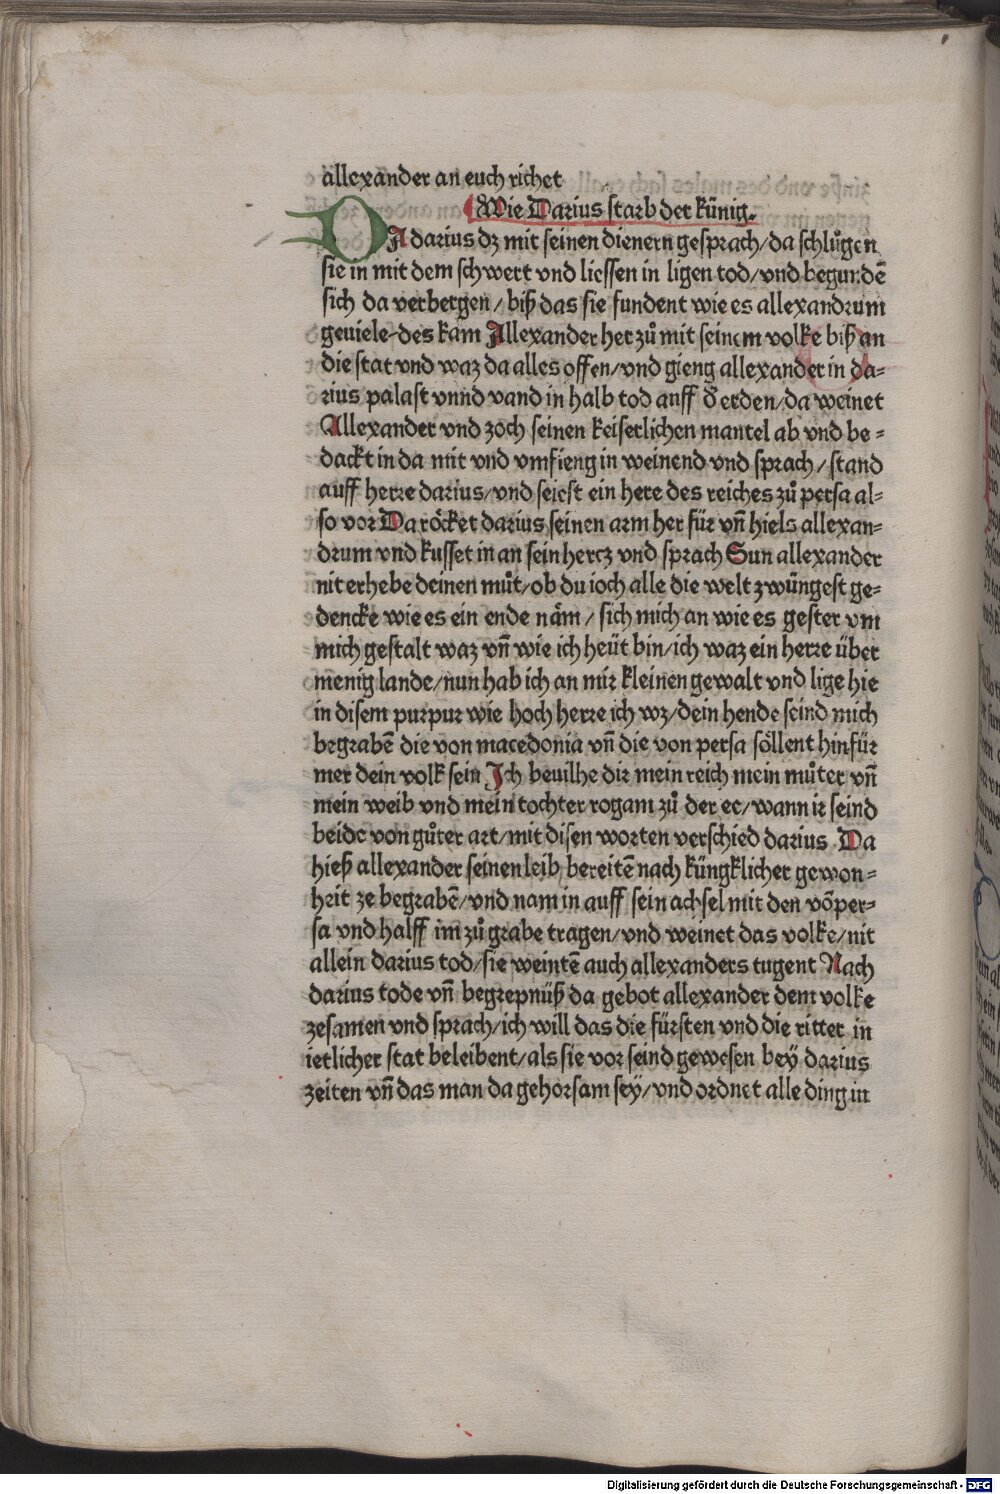 allexander an euch richet
Wie Darius starb der künig.
DA darius dz mit seinen dienern gesprach/da schlůgen
sie in mit dem schwert vnd liessen in ligen tod/vnd begundē
sich da verbergen/biß das sie fundent wie es allexandrum
geuiele/des kam Allexander her zů mit seinem volke biß an
die stat vnd waz da alles offen/vnd gieng allexander in da-
rius palast vnnd vand in halb tod auff d' erden/da weinet
Allexander vnd zoch seinen keiserlichen mantel ab vnd be-
dackt in da mit vnd vmfieng in weinend vnd sprach/stand
auff herre darius/vnd seiest ein here des reiches zů persa al-
so vor Da röcket darius seinen arm her für vn̄ hiels allexan-
drum vnd kusset in an sein hercz vnd sprach Sun allexander
nit erhebe deinen můt/ob du ioch alle die welt zwüngest ge-
dencke wie es ein ende näm/sich mich an wie es gester vm
mich gestalt waz vn̄ wie ich heüt bin/ich waz ein herre über
menig lande/nun hab ich an mir kleinen gewalt vnd lige hie
in disem purpur wie hoch herre ich wz/dein hende seind mich
begrabē die von macedonia vn̄ die von persa söllent hinfür
mer dein volk sein Jch beuilhe dir mein reich mein můter vn̄
mein weib vnd mein tochter rogam zů der ee/wann ir seind
beide von gůter art/mit disen worten verschied darius Da
hieß allexander seinen leib bereitē nach küngklicher gewon-
heit ze begrabē/vnd nam in auff sein achsel mit den vō per-
sa vnd halff im zů grabe tragen/vnd weinet das volke/nit
allein darius tod/sie weintē auch allexanders tugent Nach
darius tode vn̄ begrepnüß da gebot allexander dem volke
zesamen vnd sprach/ich will das die fürsten vnd die ritter in
ietlicher stat beleibent/als sie vor seind gewesen bey darius
zeiten vn̄ das man da gehorsam sey/vnd ordnet alle ding in
Digitalisierung gefördert durch die Deutsche Forschungsgemeinschaft - DFG